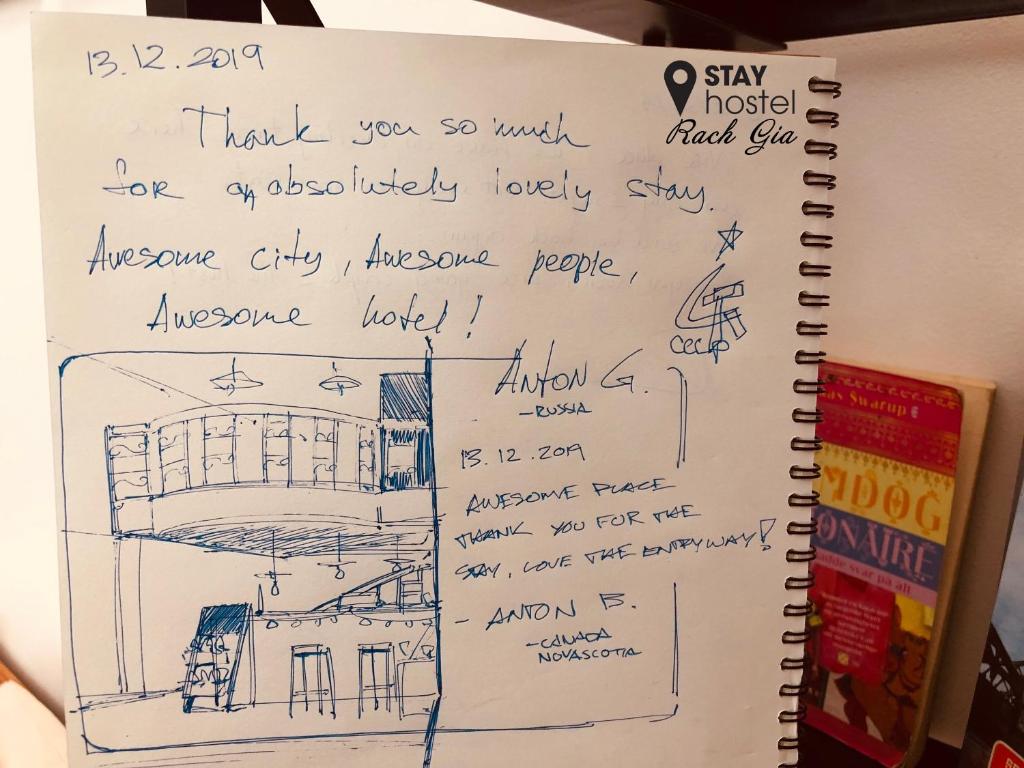 13.12.2019
STAY
hostel
Rach Gia
Thank you so much
for an absolutely lovely stay.
Awesome city, Awesome people,
Awesome hotel!
ANTON G.
- RUSSIA
13.12.2019
AWESOME PLACE
THANK YOU FOR THE
STAY, LOVE THE ENTRYWAY!
- ANTON B.
- CANADA
NOVASCOTIA
as Swarup
MDOG
ONAIRE
adde svar på allt